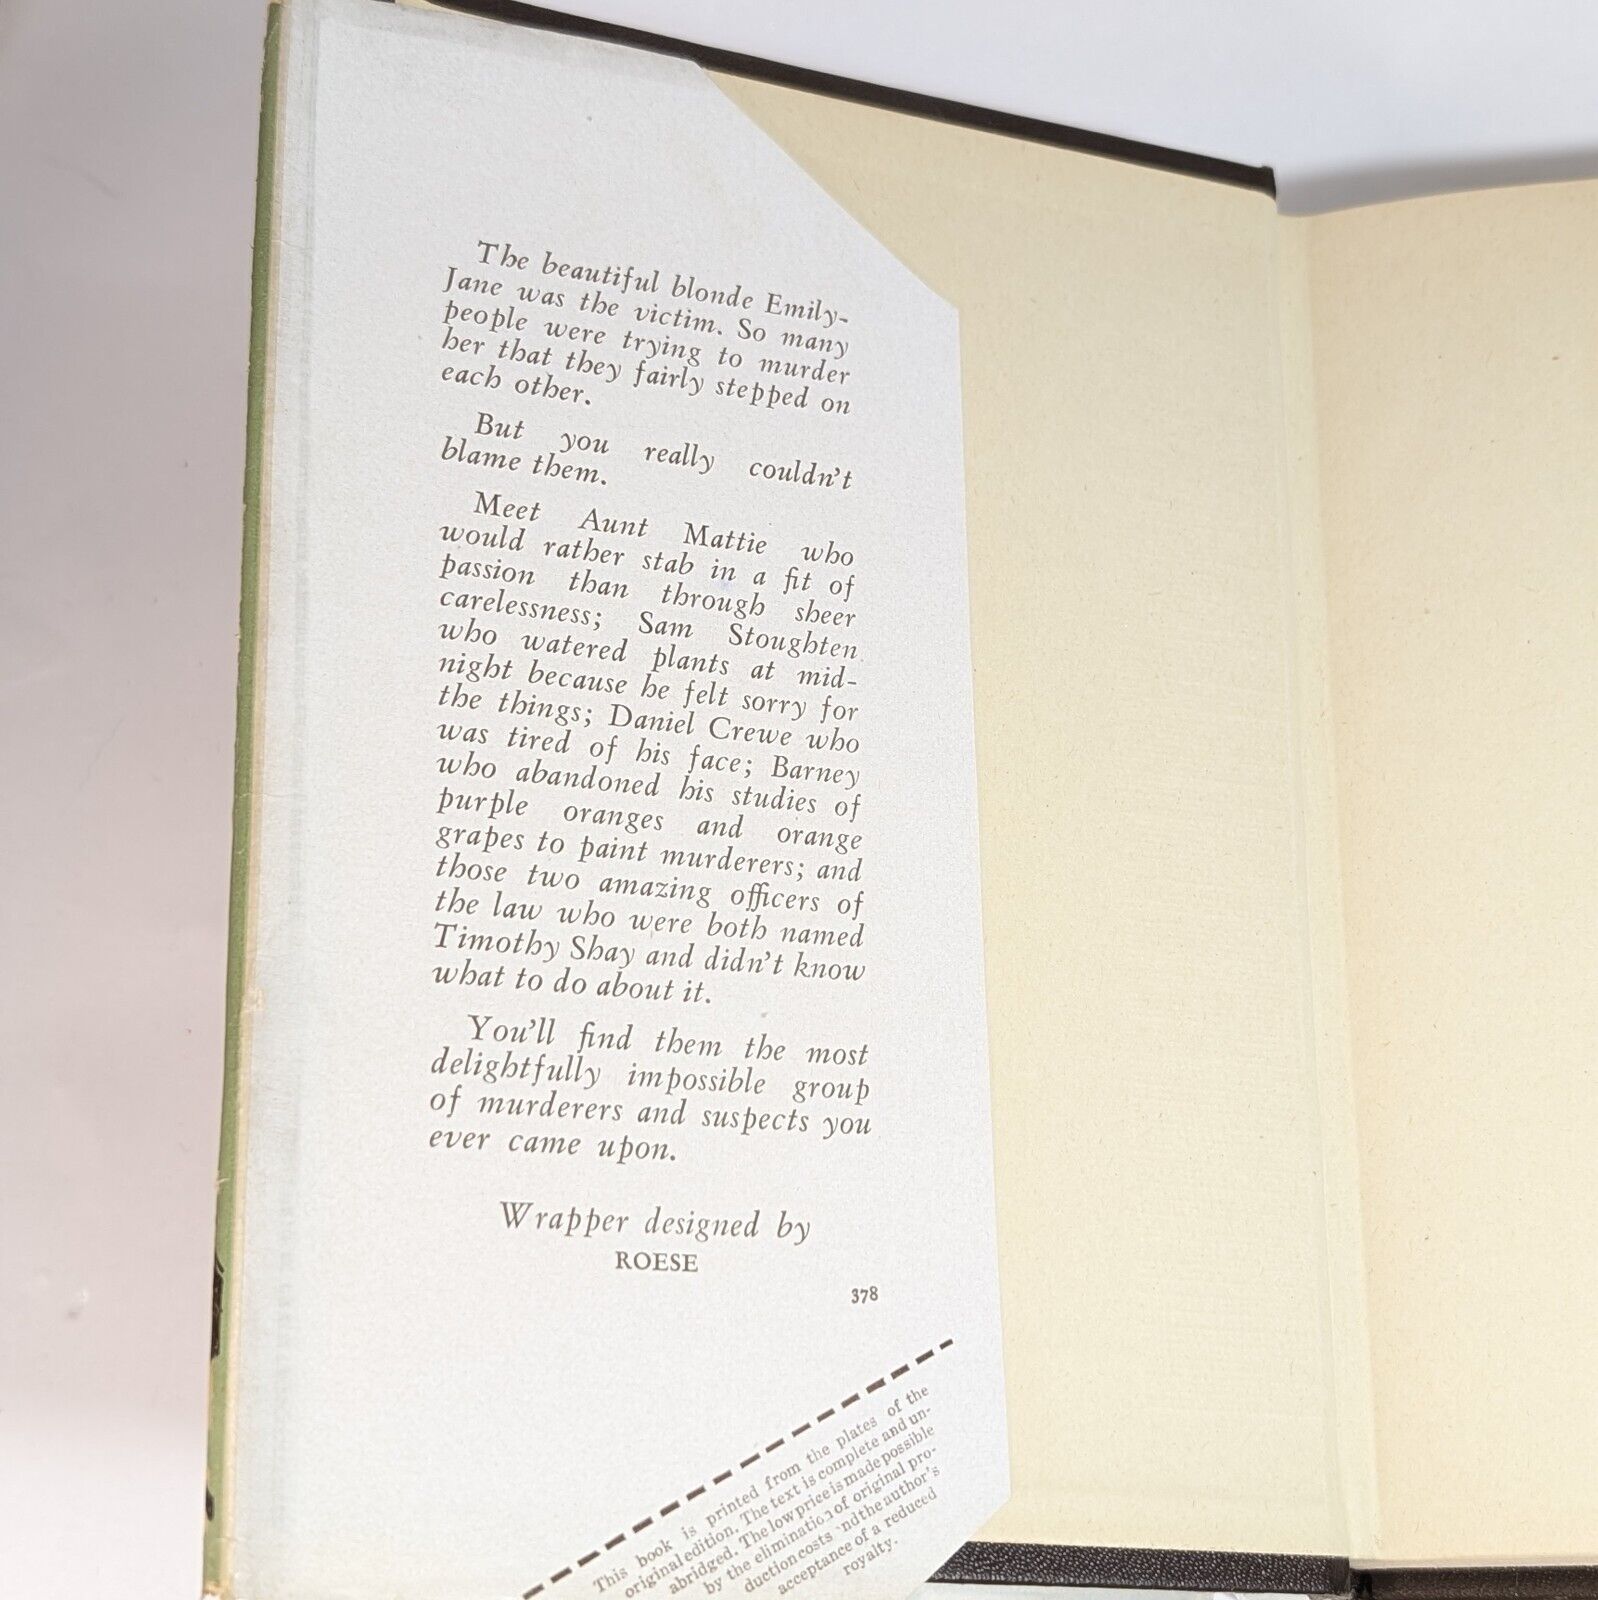 The beautiful blonde Emily-
Jane was the victim. So many
people were trying to murder
her that they fairly stepped on
each other.
But you really couldn't
blame them.
Meet Aunt Mattie who
would rather stab in a fit of
passion than through sheer
carelessness; Sam Stoughten
who watered plants at mid-
night because he felt sorry for
the things; Daniel Crewe who
was tired of his face; Barney
who abandoned his studies of
purple oranges and orange
grapes to paint murderers; and
those two amazing officers of
the law who were both named
Timothy Shay and didn't know
what to do about it.
You'll find them the most
delightfully impossible group
of murderers and suspects you
ever came upon.
Wrapper designed by
ROESE
378
This book is printed from the plates of the
original edition. The text is complete and un-
abridged. The low price is made possible
by the elimination of original pro-
duction costs and the author's
acceptance of a reduced
royalty.